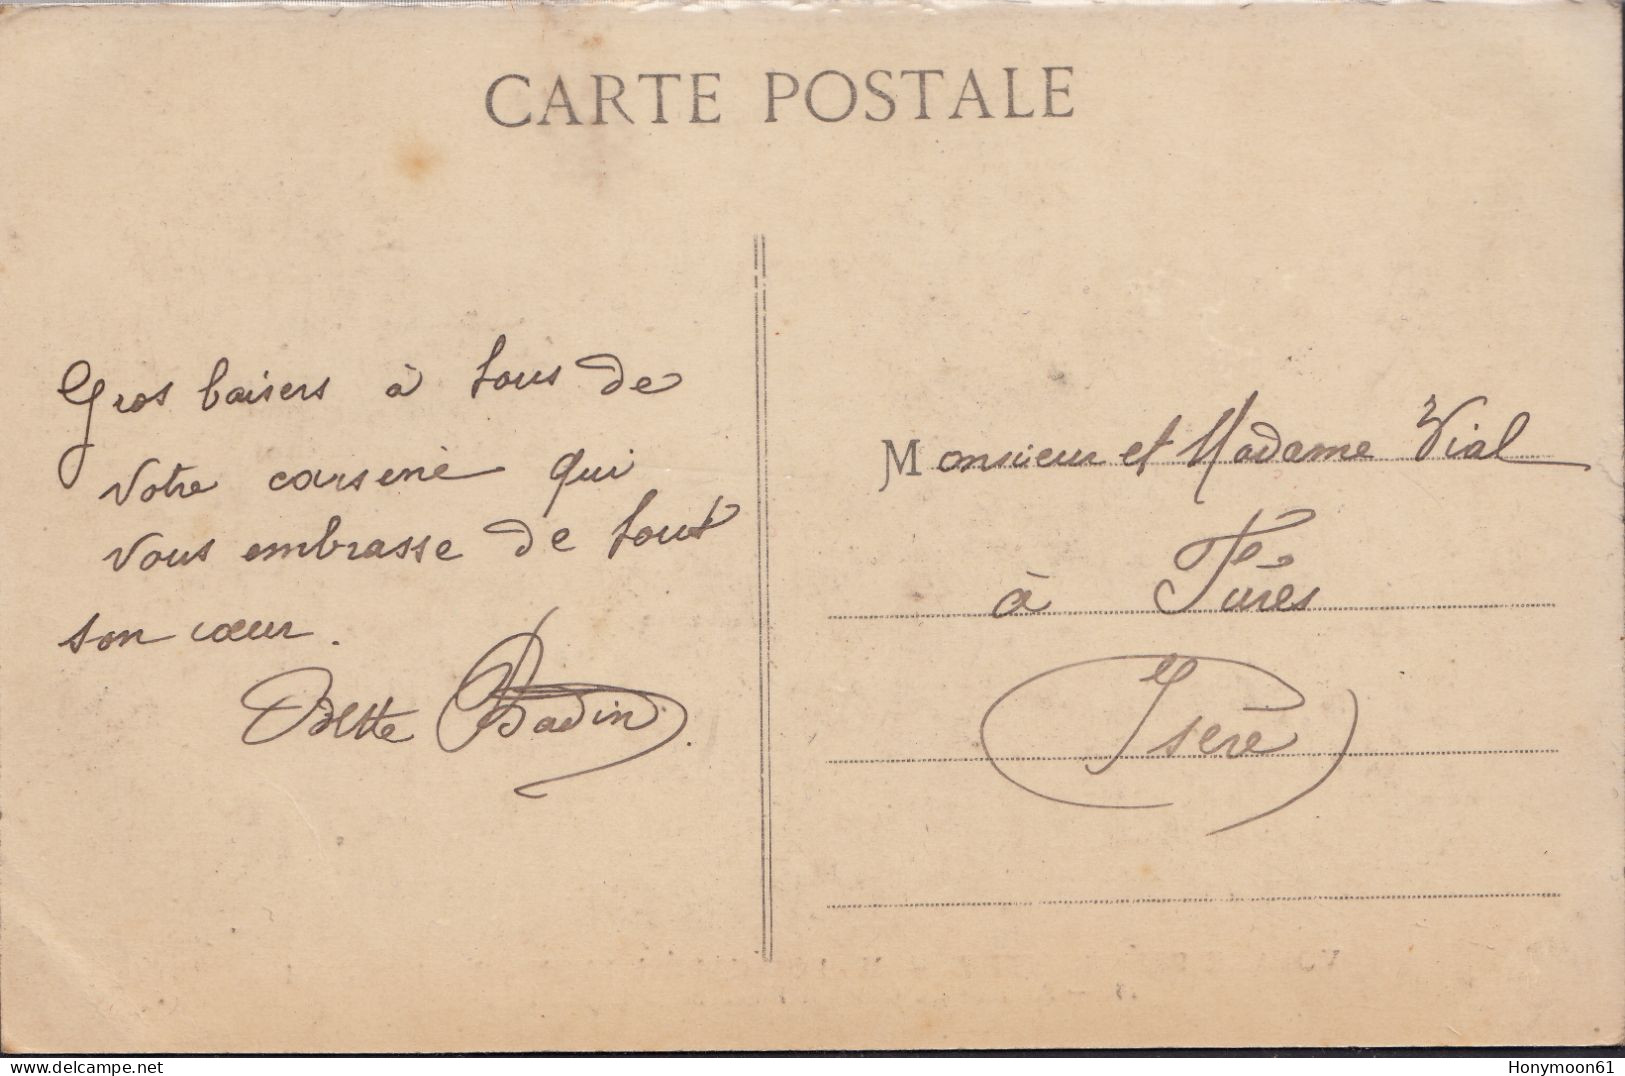 CARTE POSTALE
Gros baisers à tous de
votre cousine qui
vous embrasse de tout
son cœur.
Odette Badin.
Monsieur et Madame Vial
à Fures
Isère
www.delcampe.net
Honymoon61